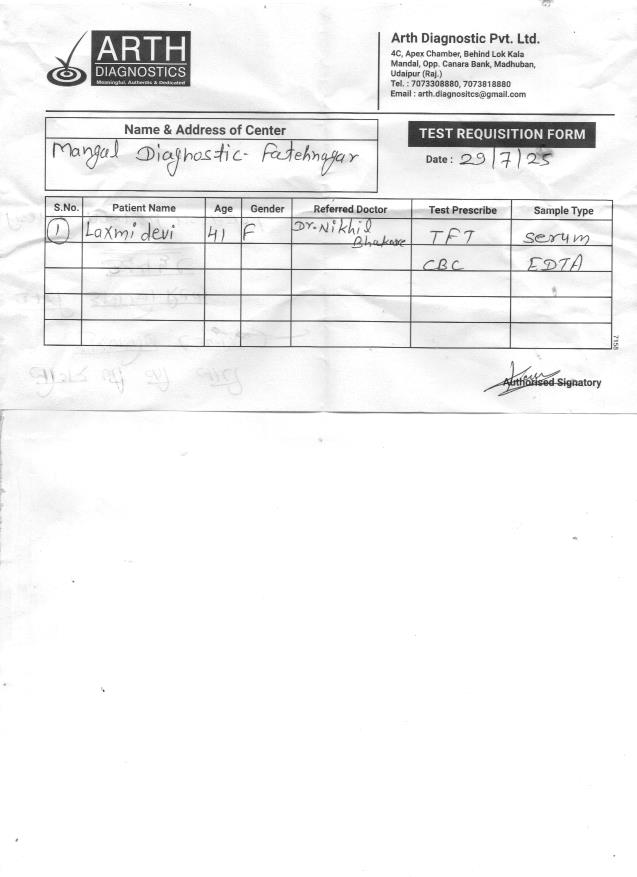 ARTH
DIAGNOSTICS
Meaningful, Authentic & Dedicated
Arth Diagnostic Pvt. Ltd.
4C, Apex Chamber, Behind Lok Kala
Mandal, Opp. Canara Bank, Madhuban,
Udaipur (Raj.)
Tel. : 7073308880, 7073818880
Email : arth.diagnositcs@gmail.com
Name & Address of Center
Mangal Diagnostic - Fatehnagar
TEST REQUISITION FORM
Date : 29/7/25
S.No. Patient Name Age Gender Referred Doctor Test Prescribe Sample Type
1 Laxmi devi 41 F Dr. Nikhil TFT serum
CBC EDTA
7158
Authorised Signatory